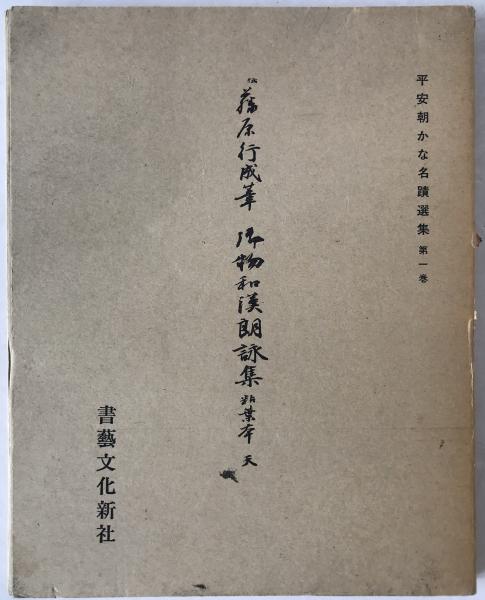 平安朝かな名蹟選集 第一巻
伝 藤原行成筆 御物和漢朗詠集 粘葉本 天
書藝文化新社